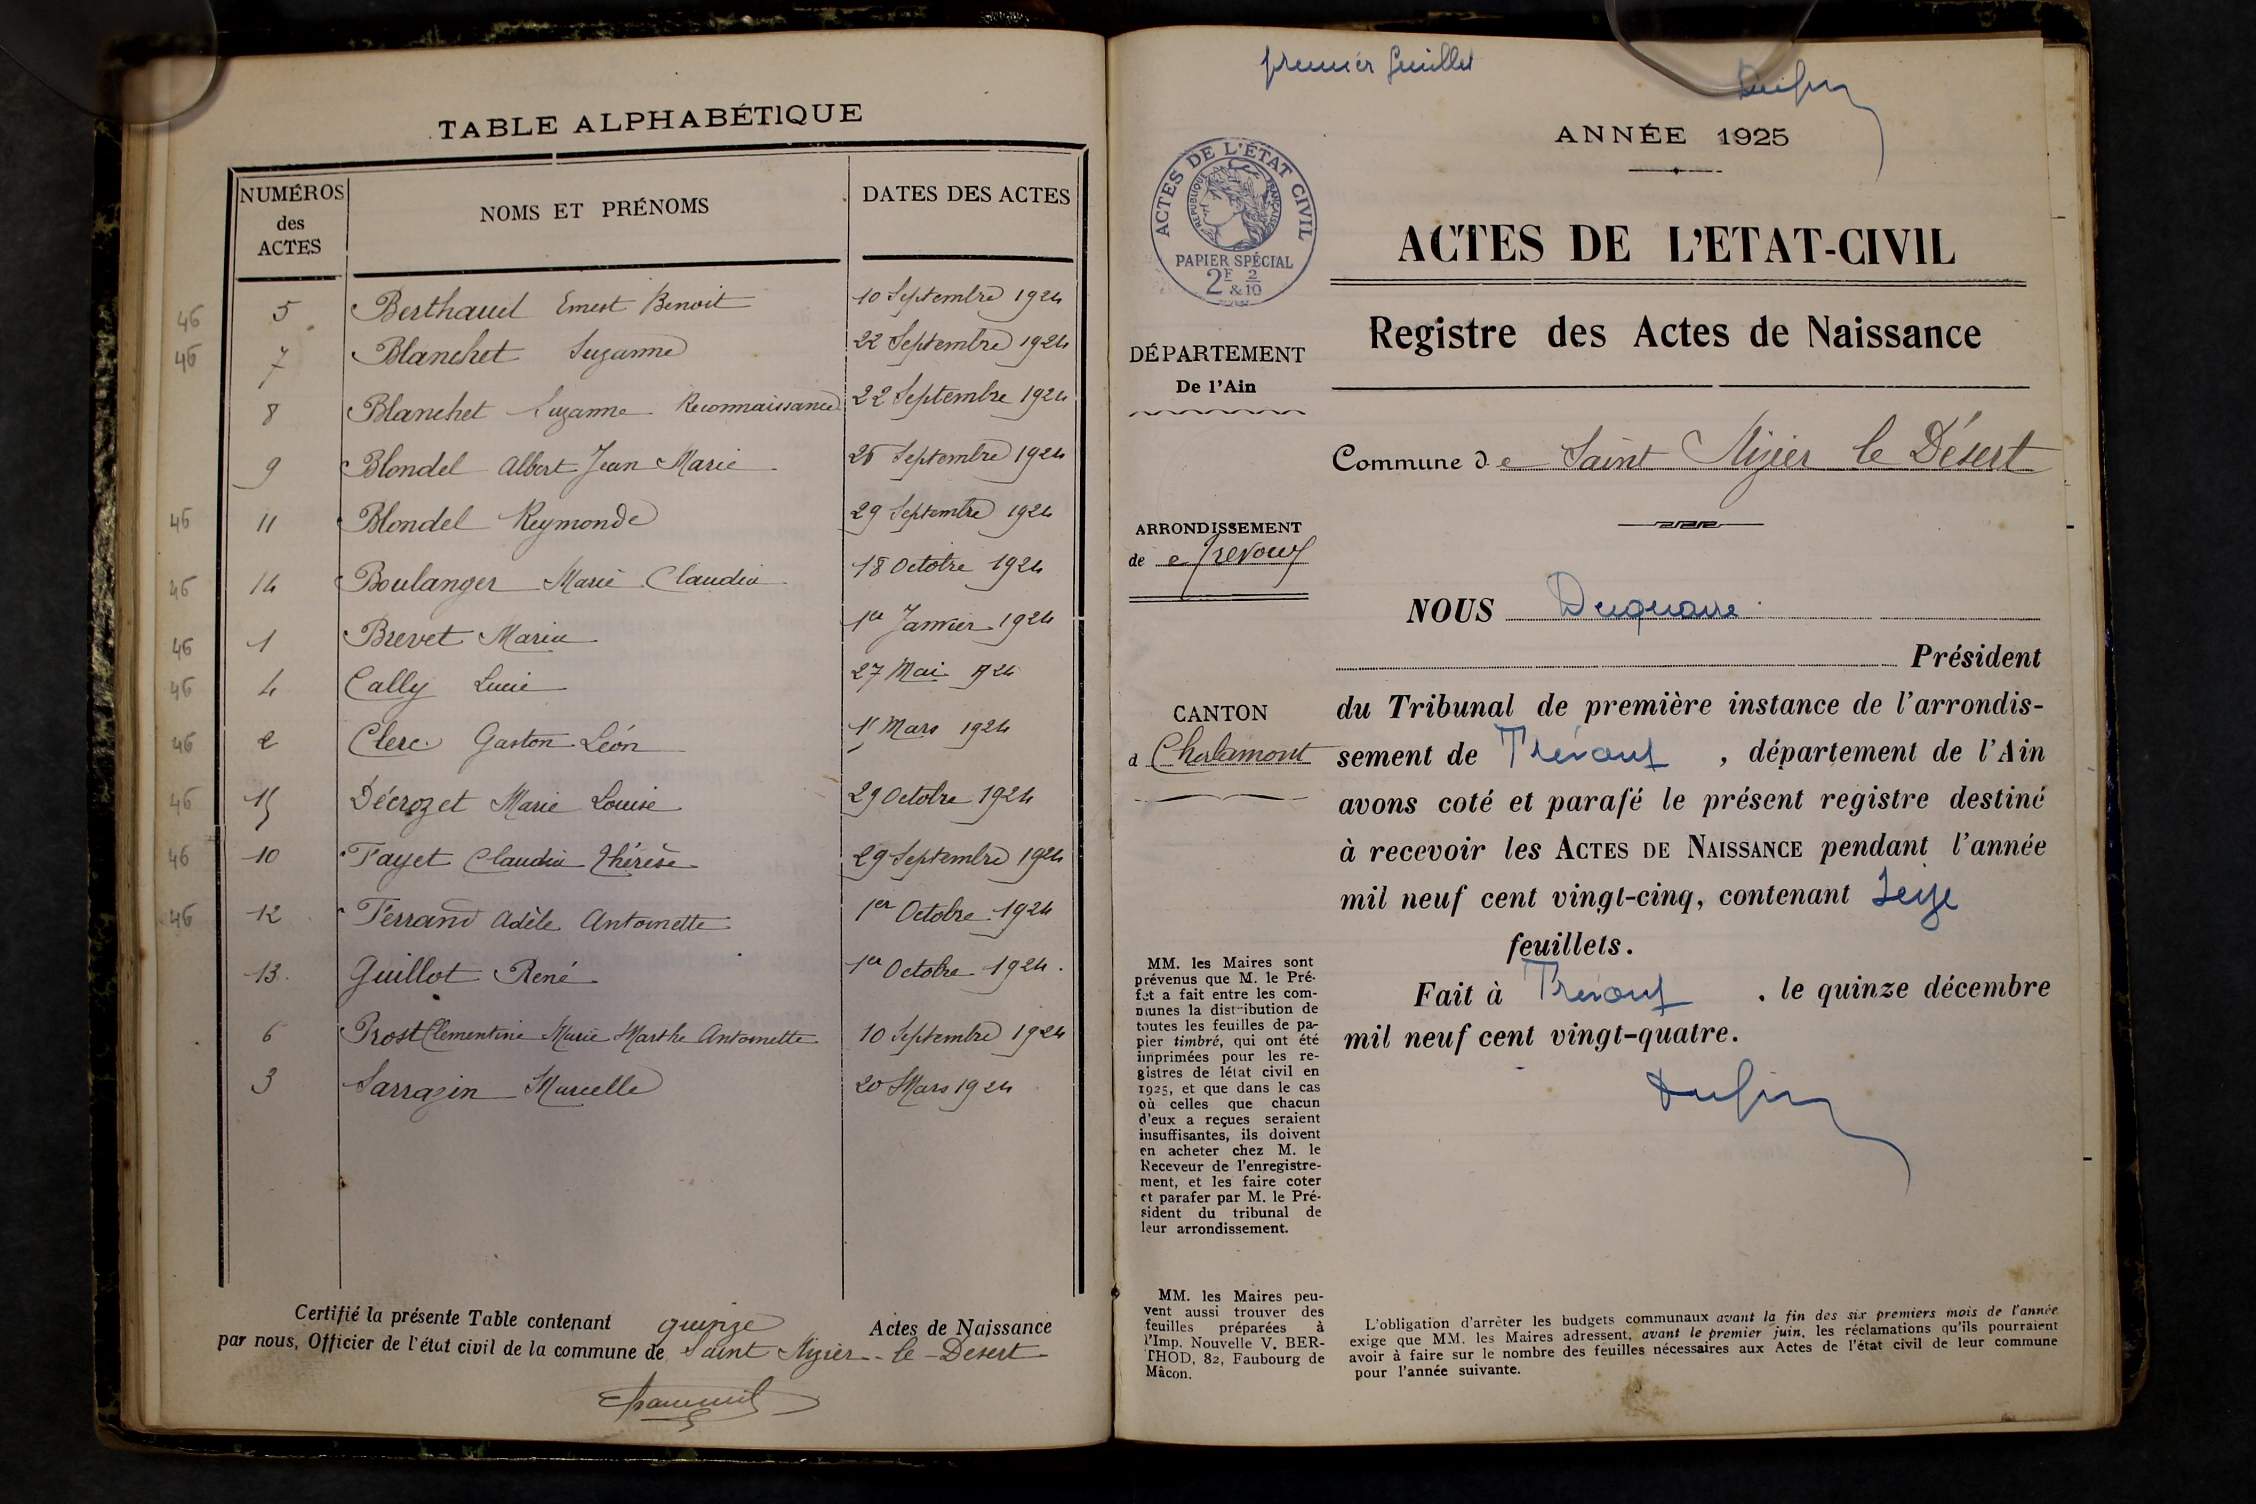 TABLE ALPHABÉTIQUE
NUMÉROS des ACTES
NOMS ET PRÉNOMS
DATES DES ACTES
46 5 Berthaud Ernest Benoit 10 Septembre 1924
46 7 Blanchet Suzanne 22 Septembre 1924
8 Blanchet Suzanne Reconnaissance 22 Septembre 1924
9 Blondel Albert Jean Marie 26 Septembre 1924
46 11 Blondel Reymonde 29 Septembre 1924
46 14 Boulanger Marie Claudia 18 Octobre 1924
46 1 Brevet Maria 1er Janvier 1924
46 4 Cally Lucie 27 Mai 1924
46 2 Clerc Gaston Léon 1er Mars 1924
46 15 Décrozet Marie Louise 29 Octobre 1924
46 10 Fayet Claudia Thérèse 29 Septembre 1924
46 12 Ferrand Adèle Antoinette 1er Octobre 1924
13 Guillot René 1er Octobre 1924
6 Prost Clementine Marie Marthe Antoinette 10 Septembre 1924
3 Sarrazin Marcelle 20 Mars 1924
Certifié la présente Table contenant quinze Actes de Naissance
par nous, Officier de l'état civil de la commune de Saint Nizier-le-Désert
premier feuillet
ANNÉE 1925
ACTES DE L'ÉTAT CIVIL
RÉPUBLIQUE FRANÇAISE
PAPIER SPÉCIAL
2F & 2/10
ACTES DE L'ETAT-CIVIL
Registre des Actes de Naissance
DÉPARTEMENT
De l'Ain
Commune de Saint Nizier le Désert
ARRONDISSEMENT
de Trevoux
CANTON
d Chalamont
NOUS
Président
du Tribunal de première instance de l'arrondis-
sement de Trévoux, département de l'Ain
avons coté et parafé le présent registre destiné
à recevoir les ACTES DE NAISSANCE pendant l'année
mil neuf cent vingt-cinq, contenant Seize
feuillets.
Fait à Trévoux, le quinze décembre
mil neuf cent vingt-quatre.
MM. les Maires sont
prévenus que M. le Pré-
fet a fait entre les com-
munes la distribution de
toutes les feuilles de pa-
pier timbré, qui ont été
imprimées pour les re-
gistres de létat civil en
1925, et que dans le cas
où celles que chacun
d'eux a reçues seraient
insuffisantes, ils doivent
en acheter chez M. le
Receveur de l'enregistre-
ment, et les faire coter
et parafer par M. le Pré-
sident du tribunal de
leur arrondissement.
MM. les Maires peu-
vent aussi trouver des
feuilles préparées à
l'Imp. Nouvelle V. BER-
THOD, 82, Faubourg de
Mâcon.
L'obligation d'arrêter les budgets communaux avant la fin des six premiers mois de l'année
exige que MM. les Maires adressent, avant le premier juin, les réclamations qu'ils pourraient
avoir à faire sur le nombre des feuilles nécessaires aux Actes de l'état civil de leur commune
pour l'année suivante.